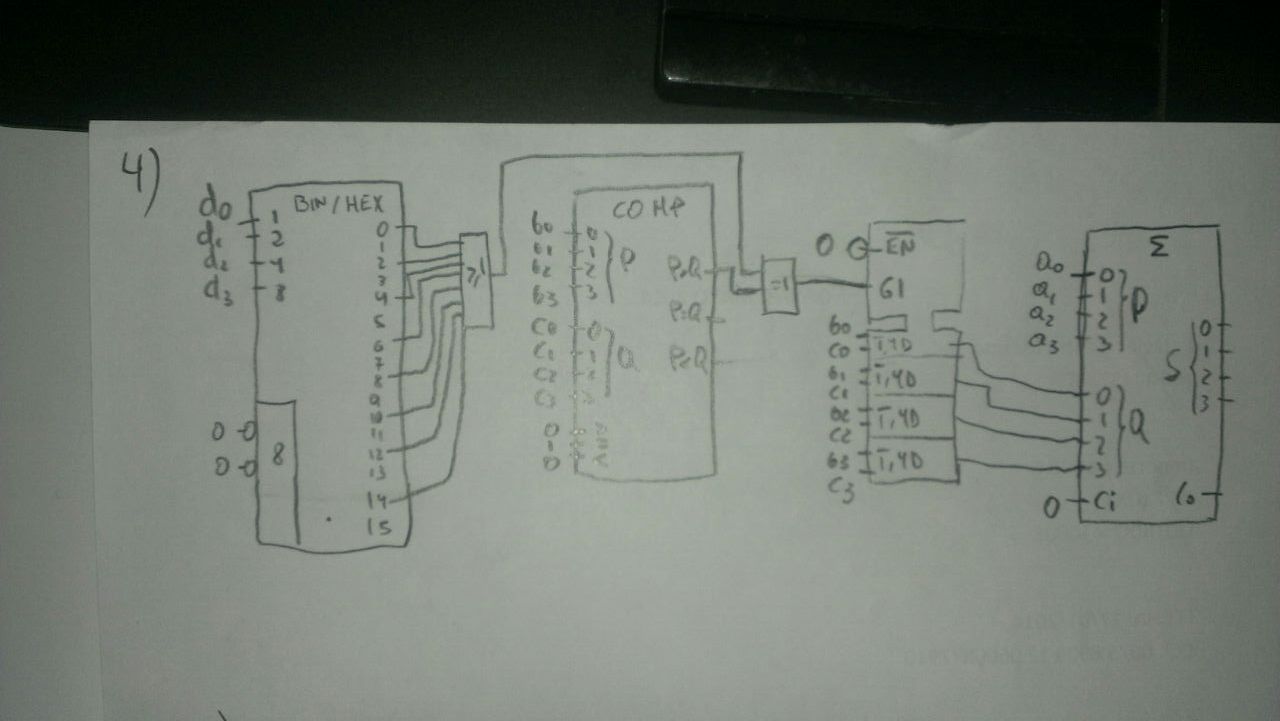 4)
BIN/HEX
d0 1
d1 2
d2 4
d3 8
0
1
2
3
4
5
6
7
8
9
10
11
12
13
14
15
0
0
8
≥1
COMP
b0 0
b1 1
b2 2
b3 3
P
C0 0
C1 1
C2 2
C3 3
Q
0
1
0
P>Q
P=Q
P<Q
=1
0 EN
G1
b0
C0 1,4D
b1
C1 1,4D
b2
C2 1,4D
b3
C3 1,4D
Σ
a0 0
a1 1
a2 2
a3 3
P
0
1
2
3
Q
0 Ci
S
0
1
2
3
Co